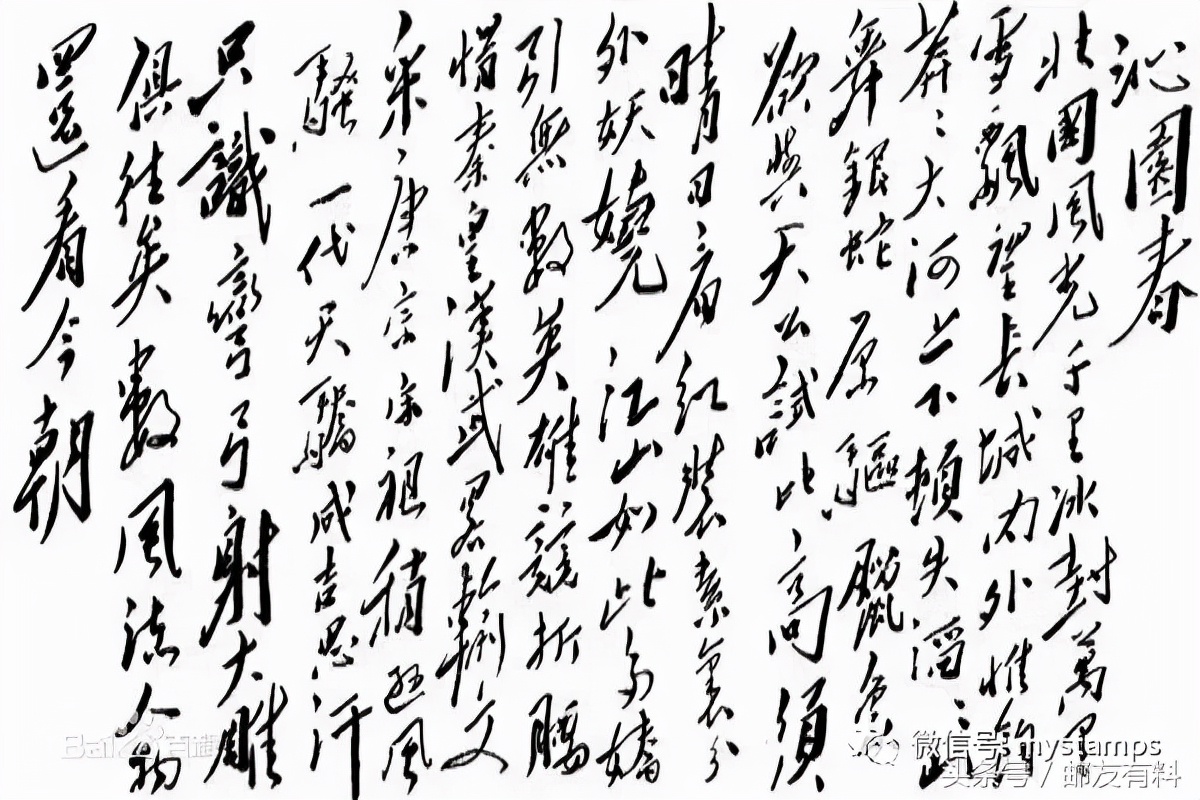 沁園春
北國風光千里冰封萬里
雪飄望長城内外惟餘
莽〻大河上下頓失滔〻山
舞銀蛇原驅臘象
欲與天公試比高須
晴日看紅裝素裹分
外妖嬈江山如此多嬌
引無數英雄競折腰
惜秦皇漢武畧輸文
采唐宗宋祖稍遜風
騷一代天驕成吉思汗
只識彎弓射大雕
俱往矣數風流人物
還看今朝
微信号: mystamps
头条号 / 邮友有料